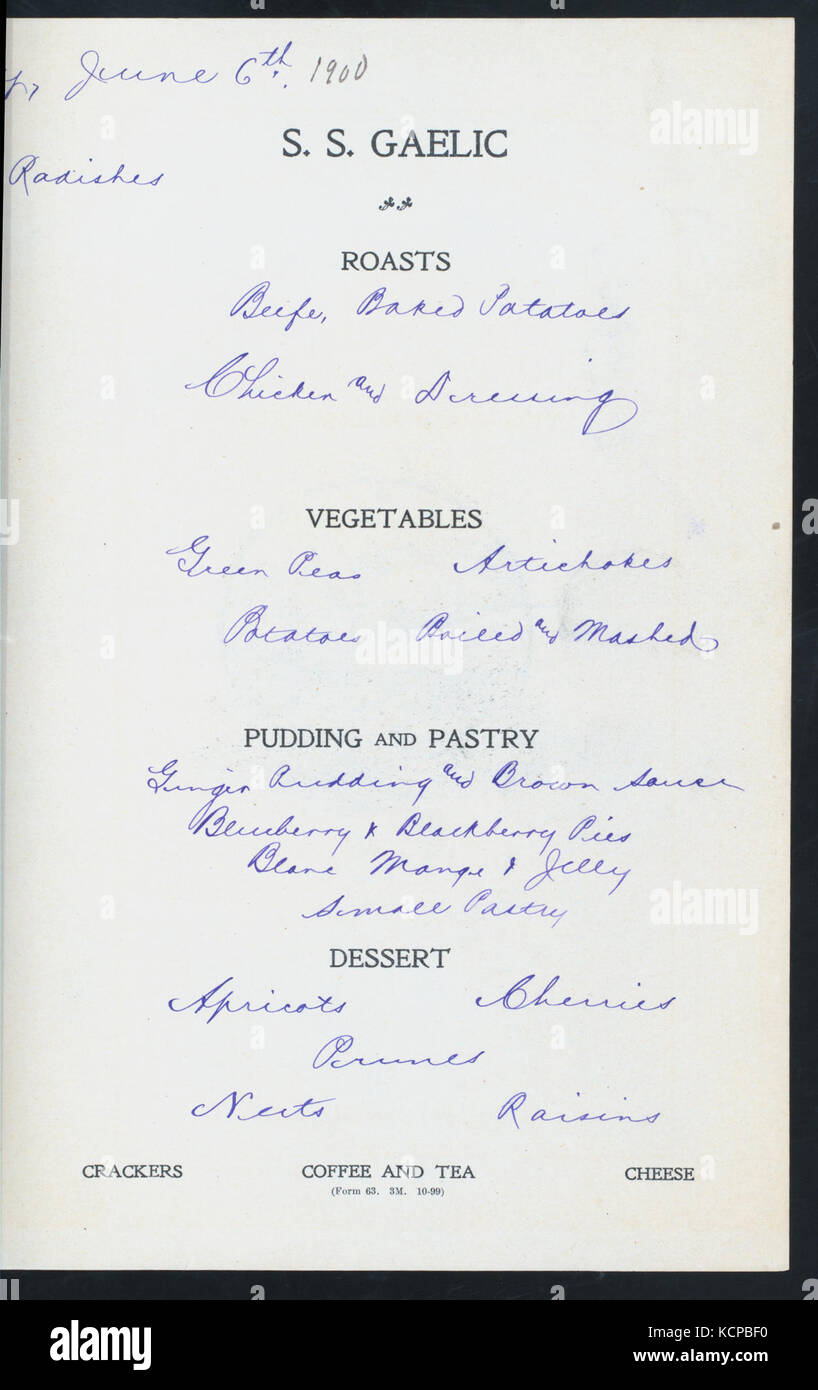 y, June 6th. 1900
S. S. GAELIC
Radishes
ROASTS
Beefe, Baked Potatoes
Chicken and Dressing
VEGETABLES
Green Peas Artichokes
Potatoes Boiled and Mashed
PUDDING AND PASTRY
Ginger Pudding and Brown Sauce
Blueberry & Blackberry Pies
Blanc Mange & Jelly
Small Pastry
DESSERT
Apricots Cherries
Prunes
Nuts Raisins
CRACKERS COFFEE AND TEA CHEESE
(Form 63. 3M. 10-99)
alamy
alamy
alamy
Image ID: KCPBF0
www.alamy.com